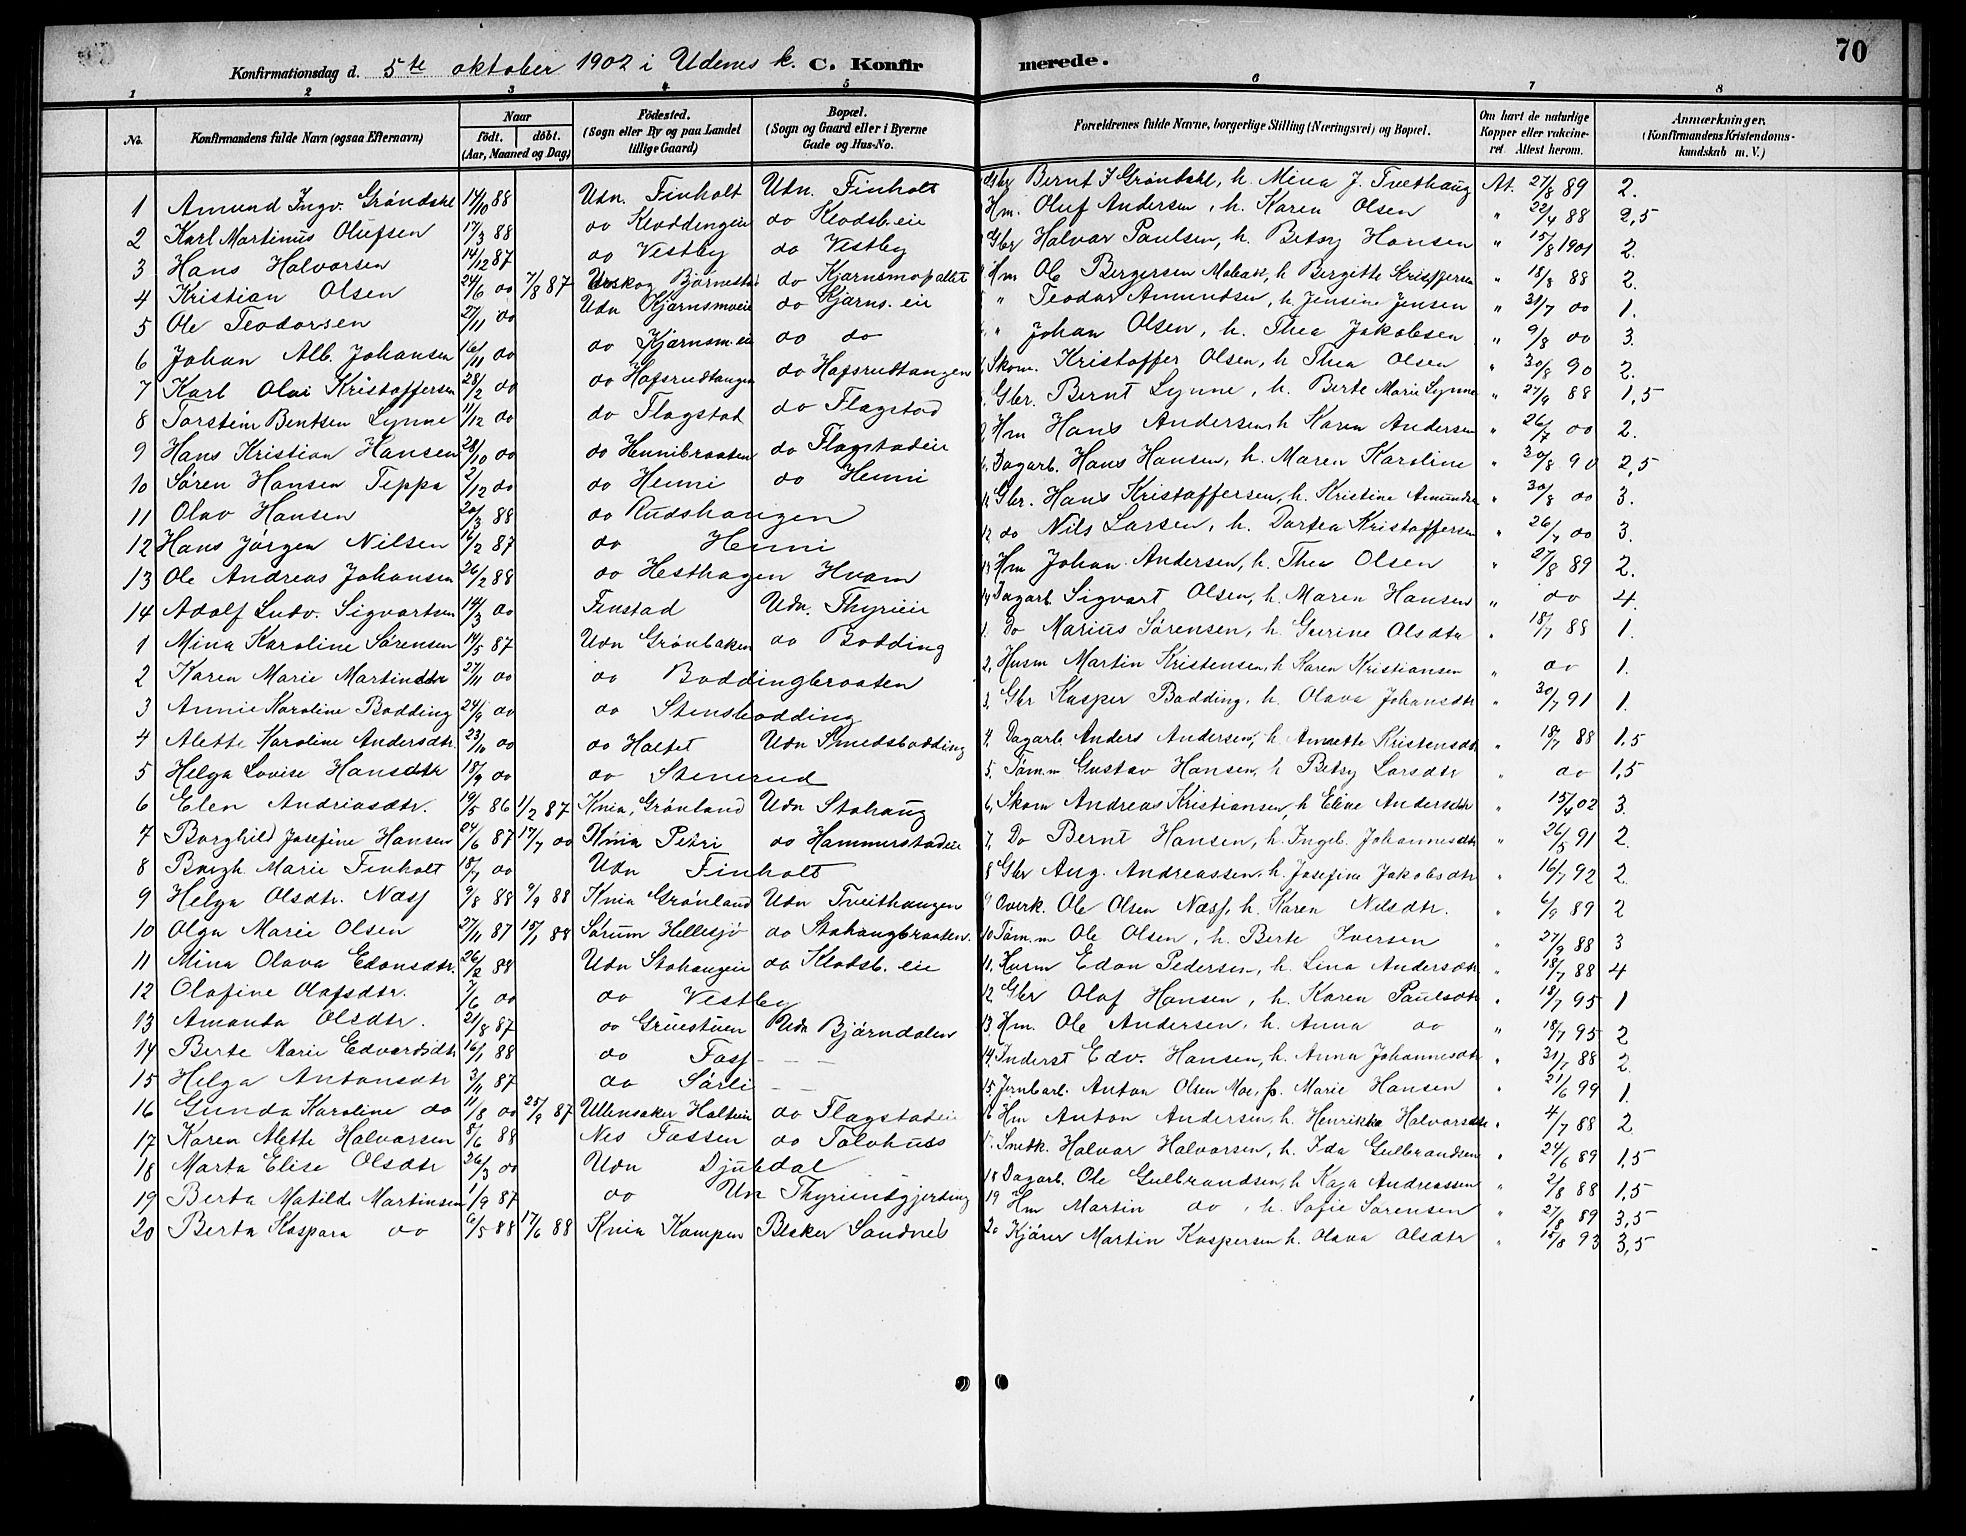 70
Konfirmationsdag d. 5te oktober 1902 i Udenes k. C. Konfirmerede.
1 2 3 4 5 6 7 8
No. Konfirmandens fulde Navn (ogsaa Efternavn) Naar født. døbt. (Aar, Maaned og Dag) Fødested. (Sogn eller By og paa Landet tillige Gaard) Bopæl. (Sogn og Gaard eller i Byerne Gade og Hus-No. Forældrenes fulde Navne, borgerlige Stilling (Næringsvei) og Bopæl. Om havt de naturlige Kopper eller vakcineret. Attest herom. Anmærkninger. (Konfirmandens Kristendomskundskab m. V.)
1 Amund Ingv. Grøndahl 14/10 88 Udn. Finholt Udn. Finholt Gbr Bernt J Grøndahl, h. Mina J. Tvethaug At. 27/8 89 2.
2 Karl Martinus Olufsen 17/3 88 do Kloddingeie do Klodsb. eie Hm. Oluf Andersen, h. Karen Olsen " 22/4 88 2,5
3 Hans Halvorsen 14/12 87 do Vestby do Vestby Gbr Halvor Paulsen, h. Betsy Hansen " 15/8 1901 2.
4 Kristian Olsen 24/6 do 7/8 87 Urskog Bjørnestad do Kjærnsmopaltet Hm Ole Bergersen h. Bergitte " 18/8 88 2.
5 Ole Teodorsen 27/11 do Udn Kjærnsmoeie do Kjærns. eie " Teodor Amundsen, h. Jensine Jensen " 31/7 do 1.
6 Johan Alb. Johansen 16/11 do do Kjærnsm. eie do do " Johan Olsen, h. Thea Jakobsen " 9/8 do 3.
7 Karl Olai Kristoffersen 28/2 do do Hafsrudtangen do Hafsrudtangen Skom. Kristoffer Olsen, h Thea Olsen " 30/8 90 2.
8 Torstein Berntsen Lynne 11/12 do do Flagstad do Flagstad Gbr. Bernt Lynne, h. Berte Marie Lynne " 27/9 88 1,5
9 Hans Kristian Hansen 28/10 do do Hennibraaten do Flagstadeie Hm Hans Andersen, h Karen Andersen " 26/7 do 2.
10 Søren Hansen Teppa 2/12 do do Henni do Henni Dagarb. Hans Hansen, h. Maren Karoline " 30/8 90 2,5
11 Olav Hansen 20/3 88 do Rudshaugen 11 Gbr. Hans Kristoffersen, h. Kristine " 30/8 do 3.
12 Hans Jørgen Nilsen 16/2 87 do Henni 12 do Nils Larsen, h. Dortea Kristoffersen " 26/7 do 3.
13 Ole Andreas Johansen 26/2 88 do Hesthagen Hvam 13 Hm Johan Andersen, h. Thea Olsen " 27/8 89 2.
14 Adolf Ludv. Sigvartsen 14/3 do Finstad Udn. Thyrieie 14 Dagarb Sigvart Olsen, h. Maren Hansen " do 4.
1 Mina Karoline Sørensen 14/5 87 Udn Grønbaken do Bodding 1. Do Marius Sørensen, h. Gurine Olsdtr " 18/7 88 1.
2 Karen Marie Martinsdtr 27/11 do do Boddingbraaten 2, Husm Martin Kristensen, h Karen Kristiansen " do 1.
3 Annie Karoline Bodding 24/9 do do Stensbodding 3, Gbr Kasper Bodding, h. Olava Johansdtr " 30/7 91 1.
4 Alette Karoline Andersdtr. 23/10 do do Holtet Udn Smedsbodding 4, Dagarb Anders Andersen, h Annette Kristensdtr " 18/7 88 1,5
5 Helga Lovise Hansdtr 18/9 do do Stenerud 5. Tøm.m Gustav Hansen, h Betsy Larsdtr " do 1,5
6 Elen Andreasdtr. 19/5 86 1/2 87 Knia, Grønland Udn Stohaug 6, Skom Andreas Kristiansen, h Eline Andersdtr " 15/4 02 3.
7 Borghild Josefine Hansen 24/6 87 17/7 do Knia Petri do Hammerstadeie 7, Do Bernt Hansen, h. Ingeb. Johannesdtr " 26/5 91 2.
8 Borgh. Marie Finholt 18/7 do Udn Finholt 8 Gbr Aug. Andreassen, h. Josefine Jakobsdtr " 16/7 92 2.
9 Helga Olsdtr. Næss 9/8 88 9/9 88 Knia Grønland Udn Tveithaugen 9 Overk. Ole Olsen Næss, h. Karen Nilsdtr. " 6/9 89 2
10 Olga Marie Olsen 27/11 87 15/1 88 Sørum Hellesjø do Stohaugbraaten. 10 Tøm.m Ole Olsen, h. Berte Iversen " 27/9 88 3
11 Mina Olava Edonsdtr. 26/2 88 Udn Stohaugeie do Klodsb. eie 11, Husm Edon Pedersen, h. Lina Andersdtr " 18/7 88 4
12 Olafine Olafsdtr. 7/6 do do Vestby 12 Gbr Olaf Hansen, h. Karen Paulsdtr " 18/7 95 1
13 Amanda Olsdtr. 21/8 87 do Gruestuen Udn Bjørndalen 13. Hm. Ole Andersen, h. Anna do " 18/7 95 2
14 Berte Marie Edvardsdtr 16/1 88 do Foss – – 14. Inderst Edv. Hansen, h. Anna Johannesdtr " 31/7 88 2.
15 Helga Antonsdtr 3/11 87 do Sørli – – 15. Jernbarb. Anton Olsen Moe, h. Marie Hansen " 21/6 99 1.
16 Gunda Karoline do 11/8 do 25/9 87 Ullensaker Holteie do Flagstadeie 16 Hm Anton Andersen, h. Henrikka Halvorsdtr " 4/7 88 2
17 Karen Alette Halvorsen 8/6 88 Nes Fossen do Tolvhuss 17. Snetk. Halvor Halvorsen, h. Ida Gulbrandsen " 24/6 89 1,5
18 Marta Elise Olsdtr 26/3 do Udn Djupdal 18 Dagarb. Ole Gulbrandsen, h Kaja Andreassen " 2/8 88 1,5
19 Berta Matilde Martinsen 1/9 87 do Un Thyrieiegjerding 19 Hm Martin do, h. Sofie Sørensen " 27/8 89 3,5
20 Berta Kaspara do 6/5 88 17/6 88 Knia Kampen Blaker Sandnes 20 Kjører Martin Kaspersen h. Olava Olsdtr " 15/8 93 3,5